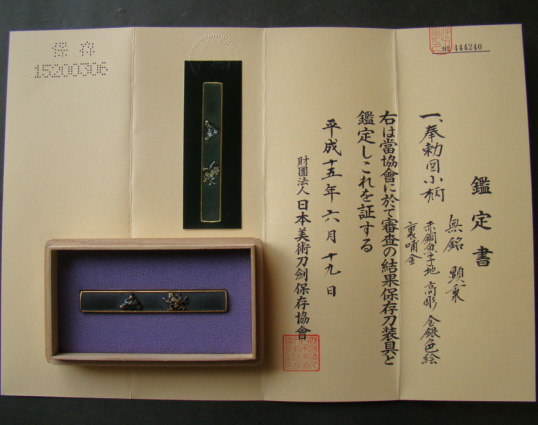 保存
15200306
No 444240
鑑定書
一、奉勅図小柄
無銘 顕乗
赤銅魚子地 高彫 金銀色絵
裏哺金
右は當協會に於て審査の結果保存刀装具と
鑑定しこれを証する
平成十五年六月十九日
財團法人 日本美術刀劍保存協會